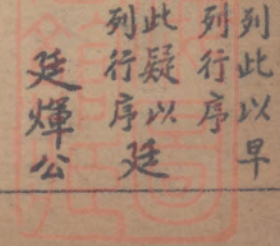 列此以早
列行序
此疑以廷
列行序
廷煇公